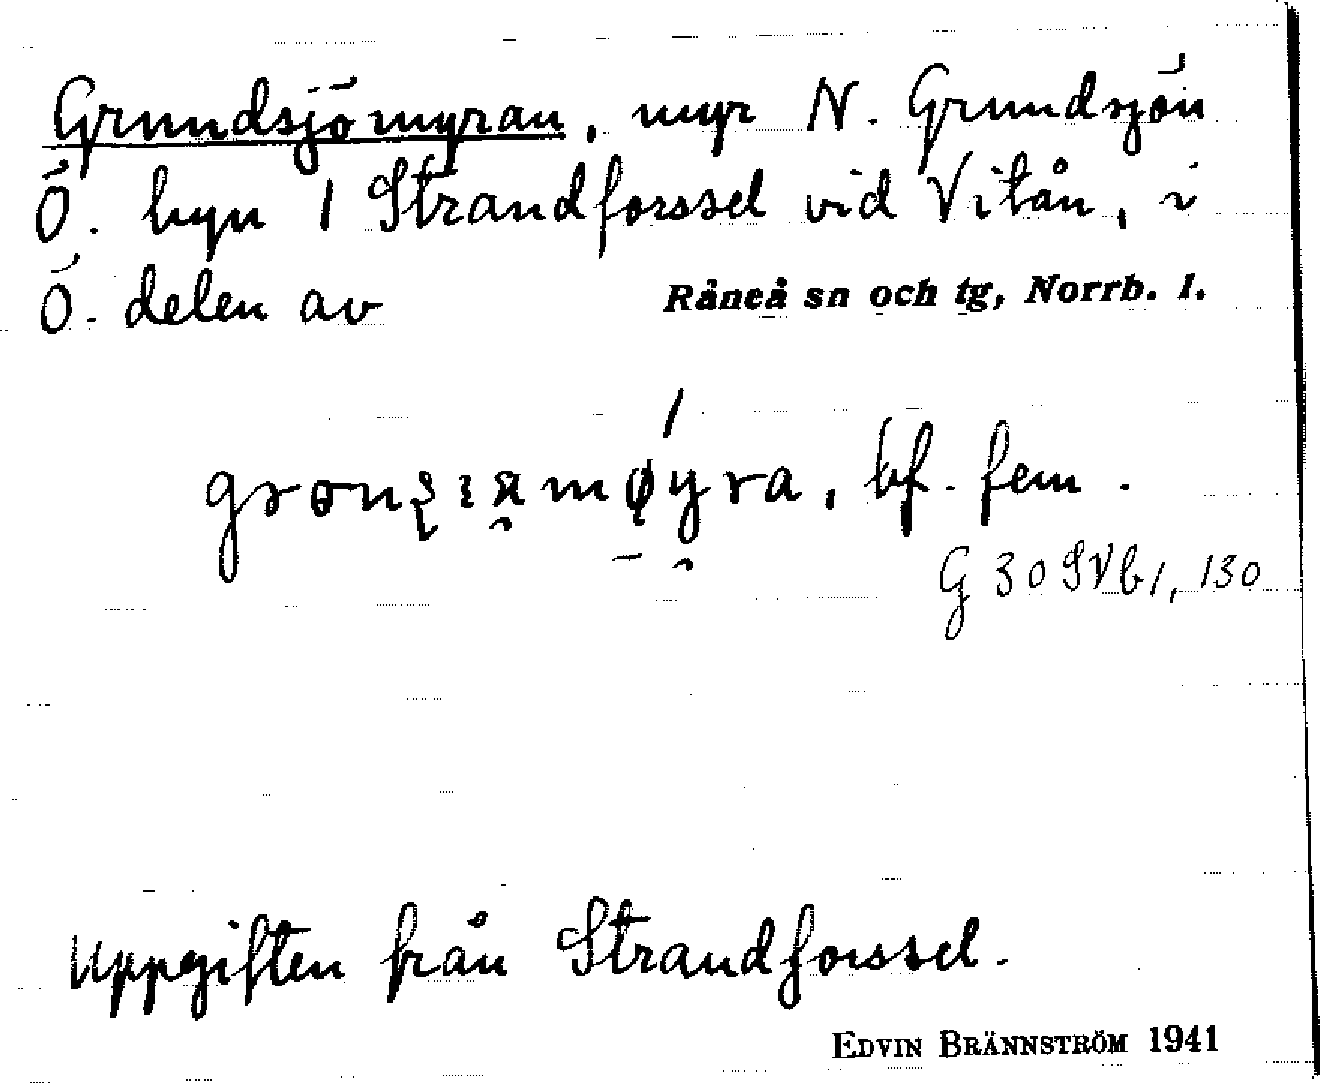 Grundsjömyran, myr N. Grundsjön
Ö. byn 1 Strandforssel vid Vitån, i
Ö. delen av Råneå sn och tg, Norrb. l.
bf. fem.
G 30 SVb1, 130
Uppgiften från Strandforssel.
EDVIN BRÄNNSTRÖM 1941